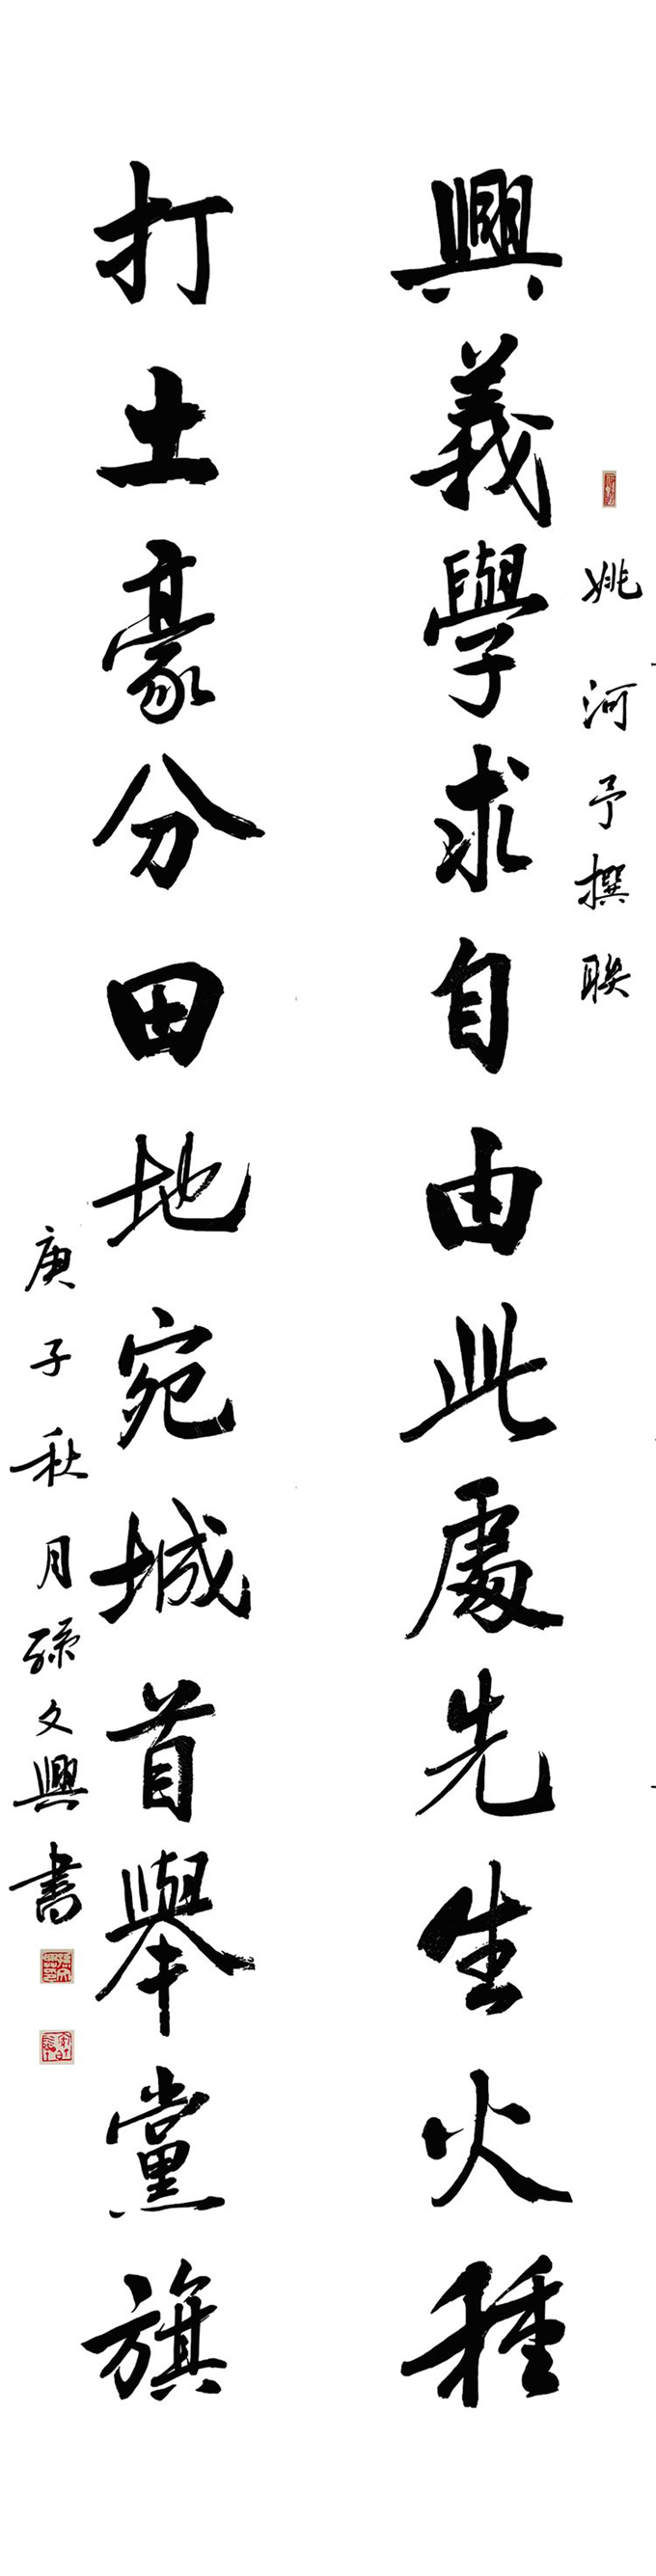 姚河予撰聯
興義學求自由此處先生火種
打土豪分田地宛城首舉黨旗
庚子秋月孫文興書